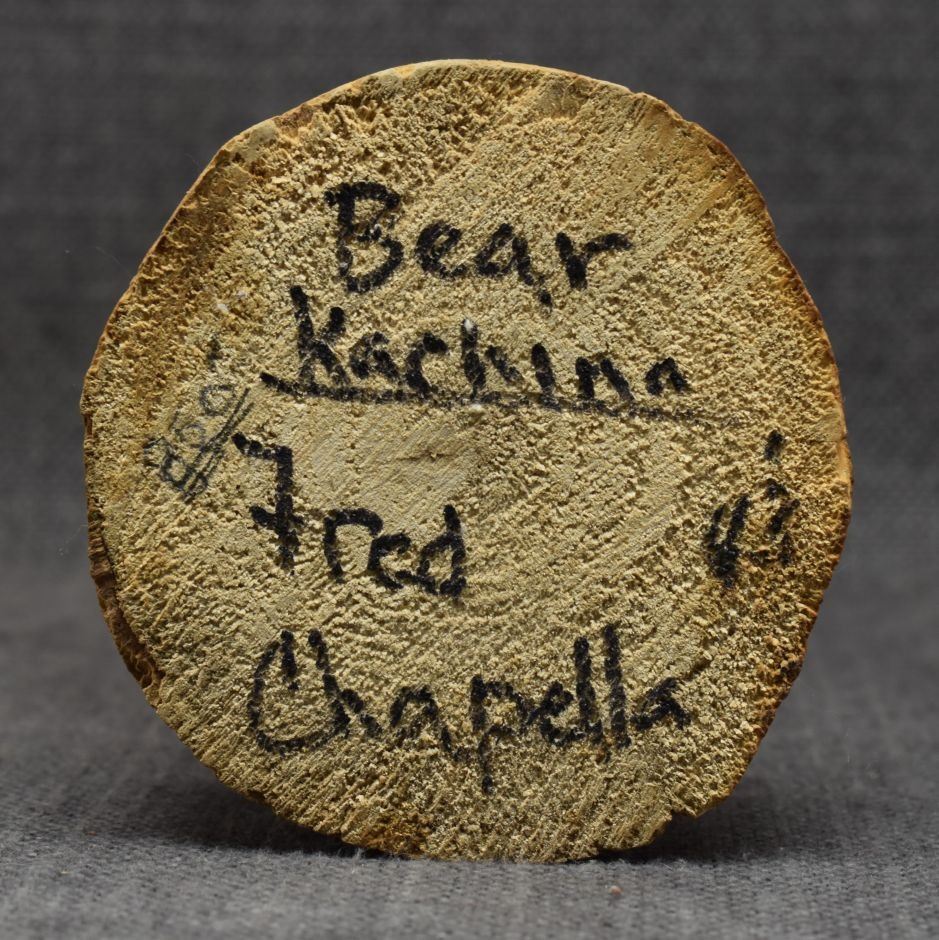 Bear
Kachina
Fred
Chapella